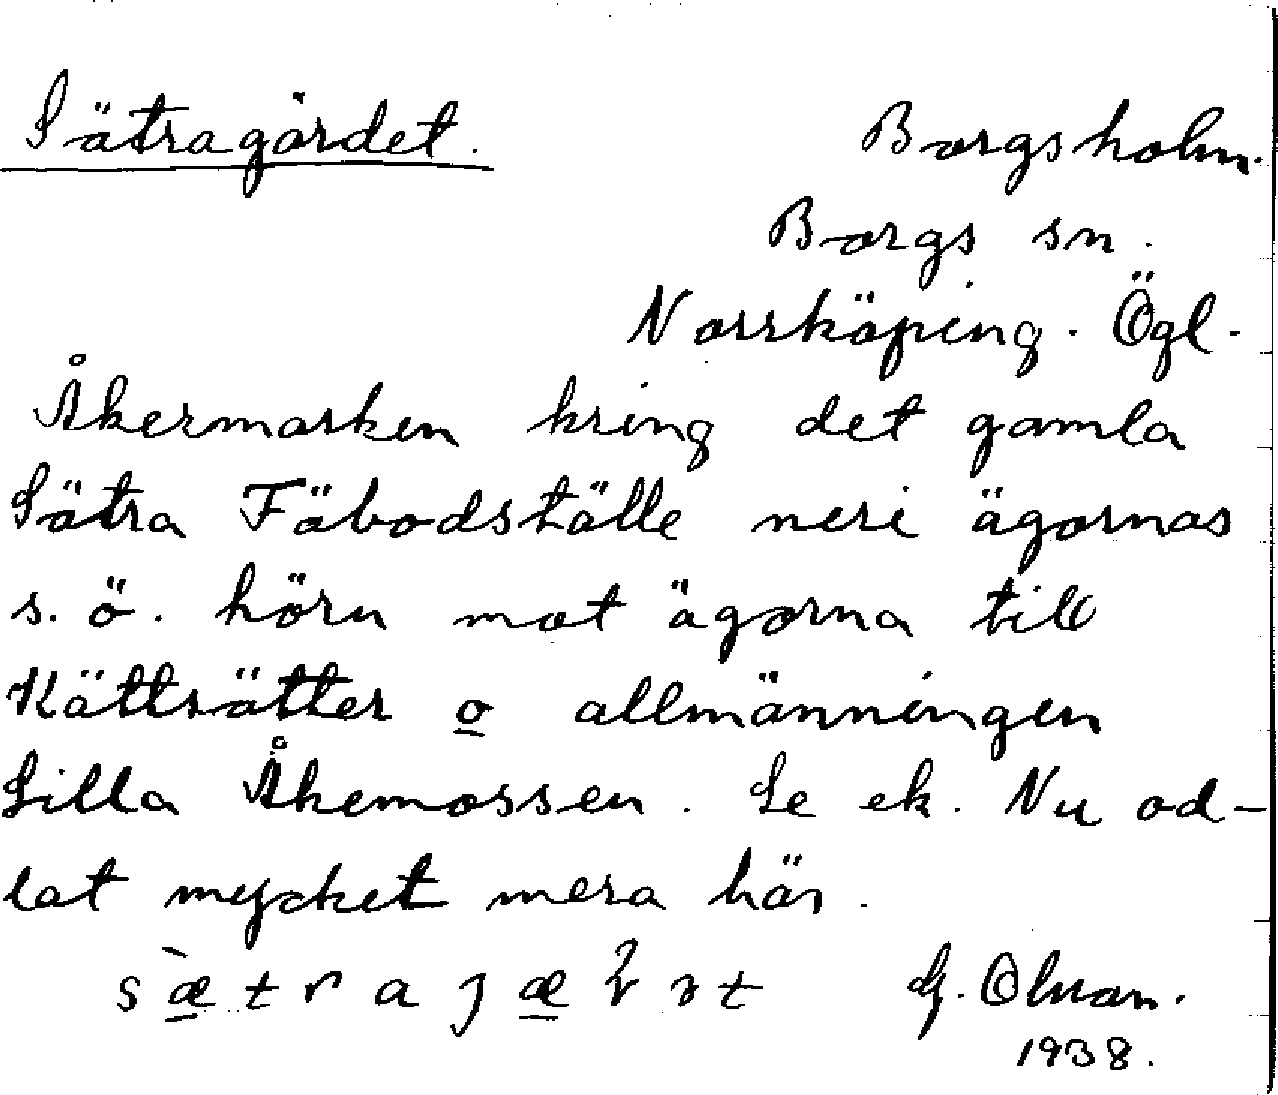 Sätragärdet. Borgsholm.
Borgs sn.
Norrköping. Ögl.
Åkermarken kring det gamla
Sätra Fäbodställe neri ägornas
s. ö. hörn mot ägorna till
Kättsätter o allmänningen
Lilla Åkemossen. Se ek. Nu od-
lat mycket mera här.
G. Olson.
1938.